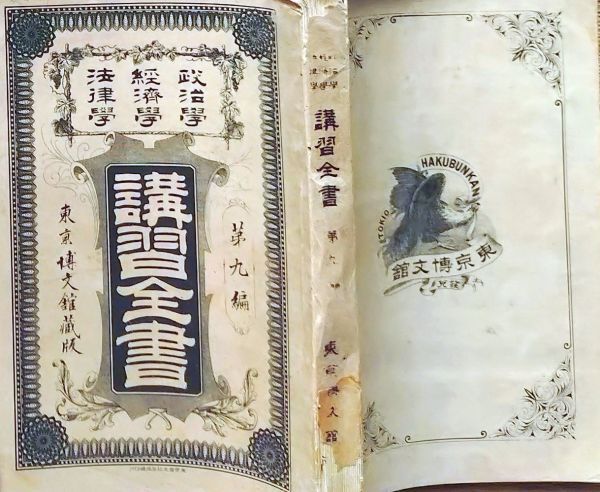 政治學
經濟學
法律學
講習全書
第九編
東京博文館藏版
講習全書
第九編
東京博文館
HAKUBUNKAN
TOKIO
東京博文館